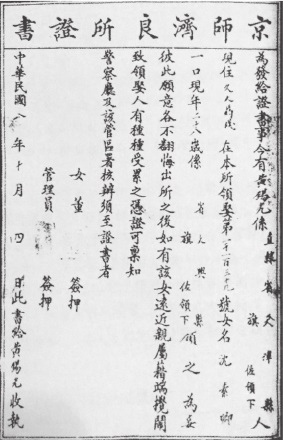 京師濟良所證書
為發給證書事今有黃錫元係直隸省天津縣人
旗佐領下
現住 在本所領娶第 號女名沈素卿
一口現年二十八歲係 省大興縣
旗佐領下 願之為妥
彼此願意各不翻悔出所之後如有該女遠近親屬藉端攪鬧
致領娶人有種種受累之憑證可稟知
警察廳及該管區署核辦須至證書者
女董 簽押
管理員 簽押
中華民國八年十月四日此書給黃錫元收執